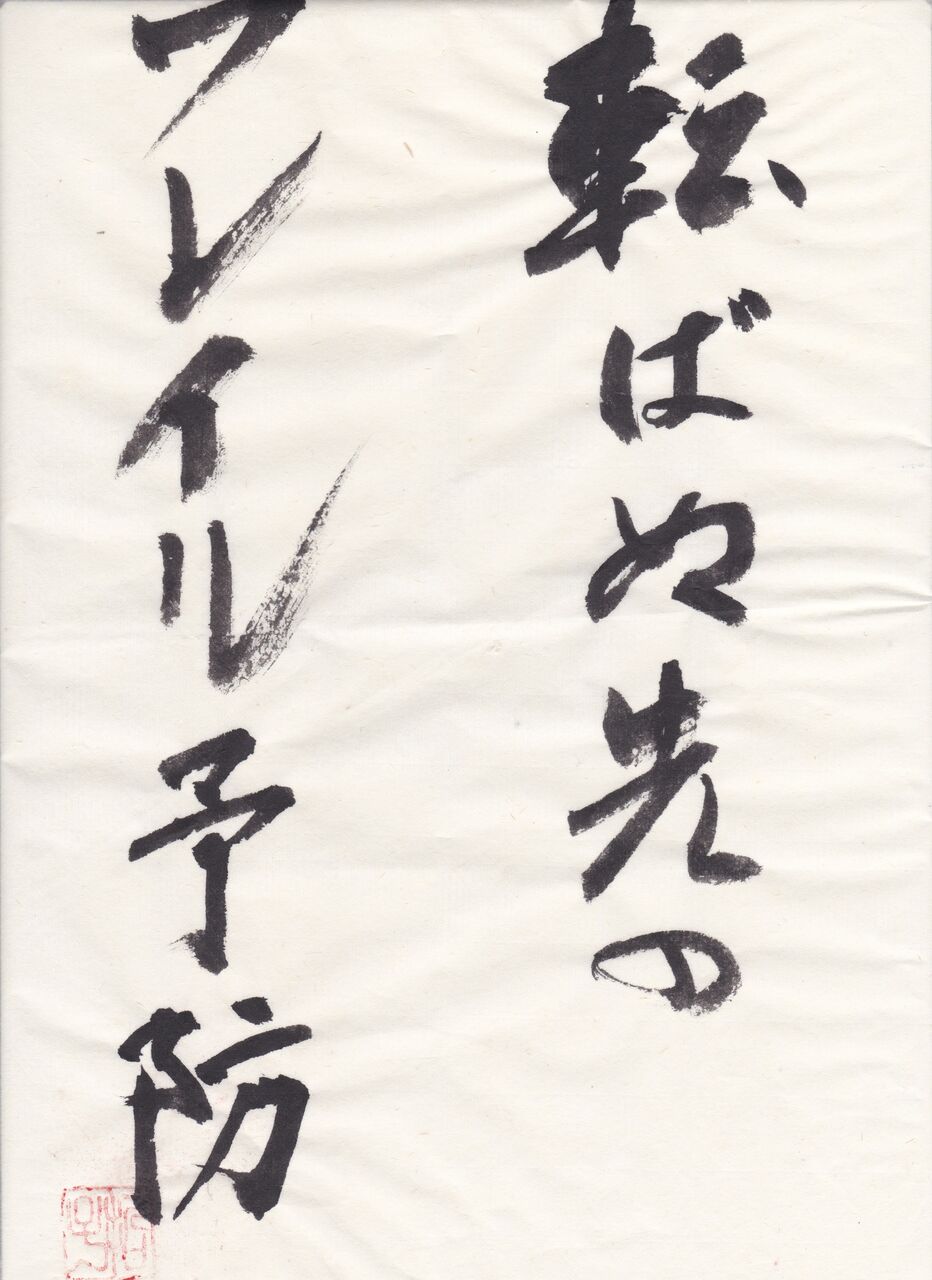 転ばぬ先の
フレイル予防